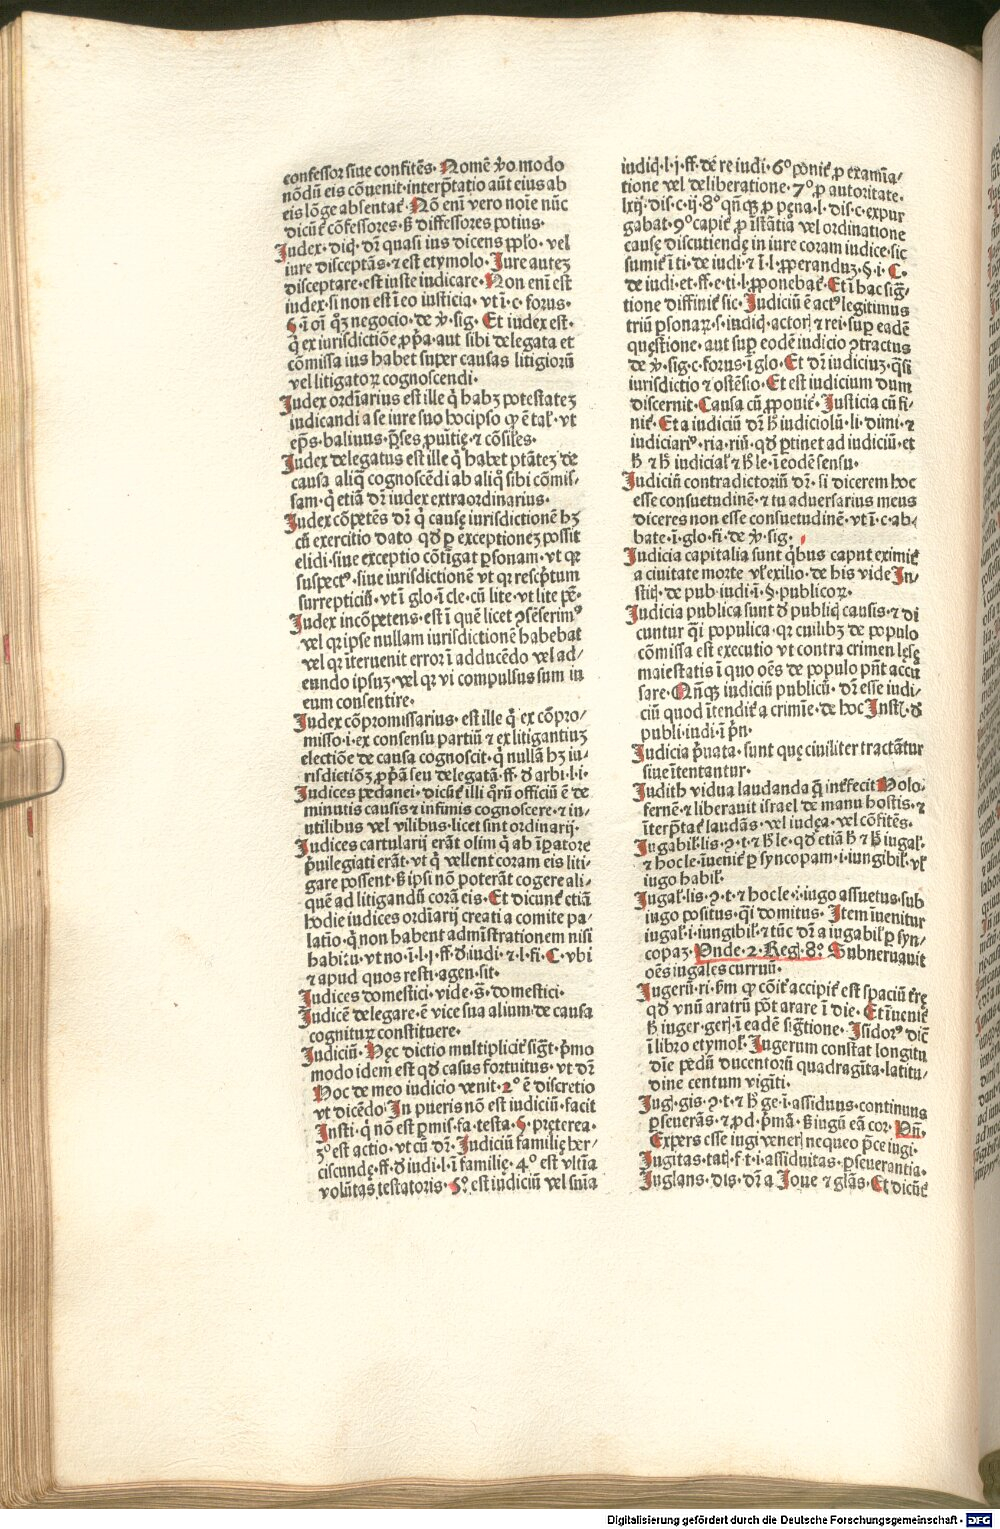 confessor siue confitēs· Nomē v̄o modo
nōdū eis cōuenit·interp̄tatio aūt eius ab
eis lōge absentat᷑· Nō enī vero noīe nūc
dicūt᷑ cōfessores· s̄ diffessores potius·
Judex·diq̄·dr̄ quasi ius dicens pp̄lo· vel
iure disceptās·⁊ est etymolo· Jure auteꝫ
disceptare·est iuste iudicare· Non enī est
iudex·si non est ī eo iusticia· vt·ī·c·forus·
§·ī oī qōꝫ negocio·de v̄·sig· Et iudex est·
q̄ ex iurisdictiōe pp̄a·aut sibi delegata et
cōmissa ius habet super causas litigiorū
vel litigatoꝝ cognoscendi·
Judex ordīarius est ille q̄ habꝫ potestateꝫ
iudicandi a se iure suo hocipso ꝙ ē tal᷑·vt
ep̄s·baliuus·p̄ses ꝓuītię·⁊ cōsiles·
Judex delegatus est ille q̄ habet ptāteꝫ de
causa aliq̄ cognoscēdi ab aliq̄ sibi cōmis-
sam·q̄ etiā dr̄ iudex extraordinarius·
Judex cōpetēs dr̄ q̄ causę iurisdictionē hꝫ
cū exercitio dato qd̄ ꝑ exceptioneꝫ possit
elidi·siue exceptio cōtīgat ꝑsonam·vt qr
suspectꝰ·siue iurisdictionē vt qr rescp̄tum
surrepticiū·vt ī glo·ī cle·cū lite·vt lite pē·
Judex incōpetens·est ī quē licet ꝯsēserimꝰ
vel qr ipse nullam iurisdictionē habebat
vel qr īteruenit error ī adducēdo vel ad/
eundo ipsuꝫ·vel qr vi compulsus sum in
eum consentire·
Judex cōpromissarius·est ille q̄ ex cōpro/
misso·i·ex consensu partiū ⁊ ex litigantiuꝫ
electiōe de causa cognoscit·q̄ nullā hꝫ iu-
risdictiōꝫ pp̄ā seu delegatā·ff·ď arbi·l·i·
Judices pedanei·dicūt᷑ illi q̄rū officiū ē de
minutis causis ⁊ infimis cognoscere·⁊ in-
utilibus vel vilibus·licet sint ordinarij·
Judices cartularij erāt olim q̄ ab īpatore
p̄uilegiati erāt·vt q̄ vellent coram eis liti-
gare possent·s̄ ipsi nō poterāt cogere ali-
quē ad litigandū corā eis· Et dicunt᷑ etiā
hodie iudices ordīarij creati a comite pa-
latīo·q̄ non habent admīstrationem nisi
habitu·vt no·ī·l·j·ff·ď iudi·⁊·l·fi·C·vbi
⁊ apud quos resti·agen·sit·
Judices domestici·vide·s̄·domestici·
Judicē delegare·ē vice sua alium·de causa
cogniturꝫ constituere·
Judiciū· Hęc dictio multiplicit᷑ sigt̄·p̄mo
modo idem est qd̄ casus fortuitus·vt dr̄
Hoc de meo iudicio venit·2° ē discretio
vt dicēdo· In pueris nō est iudiciū·facit
Insti·q̄ nō est ꝑmis·fa·testa·§·pręterea·
3° est actio·vt cū dr̄· Judiciū familię her/
ciscundę·ff·ď iudi·l·ī familię·4° est vltīa
volūtas testatoris·5° est iudiciū vel snīa
iudiq̄·l·j·ff·dē re iudi·6° ponit᷑ ꝓ examīa/
tione vel deliberatione·7° ꝓ autoritate·
lxij·dis·c·ij·8° qn̄qꝫ ꝓ pęna·l·dis·c·expur
gabat·9° capit᷑ ꝓ īstātia vel ordinatione
causę discutiendę in iure coram iudice·sic
sumit᷑ ī ti·de iudi·⁊ ī·l·ꝓperanduꝫ·§·i·C·
de iudi·et·ff·e·ti·l·ꝓponebat᷑· Et ī hac siḡ-
tione diffinit᷑ sic· Judiciū ē actꝰ legitimus
triū ꝑsonaꝝ·s·iudiq̄·actor᷑ ⁊ rei·suꝑ eadē
quęstione·aut suꝑ eodē iudicio ꝯtractus
de v̄·sig·c·forus·ī glo· Et dr̄ iudiciuꝫ·q̄si
iurisdictio ⁊ ostēsio· Et est iudicium dum
discernit· Causa cū ꝓponit᷑· Justicia cū fi-
nit᷑· Et a iudiciū dr̄ h̄ iudiciolū·li·dimi·⁊
iudiciariꝰ·ria·riū·qd̄ ꝑtinet ad iudiciū·et
h̄ ⁊ h̄ iudicial᷑ ⁊ h̄ le·ī eodē sensu·
Judiciū contradictoriū dr̄·si dicerem hoc
esse consuetudinē·⁊ tu aduersarius meus
diceres non esse consuetudinē·vt ī·c·ab/
bate·ī·glo·fi·de v̄·sig·
Judicia capitalia sunt q̄bus caput eximit᷑
a ciuitate morte vl᷑ exilio·de his vide In/
stiq̄·de pub·iudi·ī·§·publicoꝝ·
Judicia publica sunt ď publiq̄ causis·⁊ di
cuntur q̄si populica·qr cuilibꝫ de populo
cōmissa est executio vt contra crimen lęsę
maiestatis ī quo oēs de populo pn̄t accu
sare· Qn̄qꝫ iudiciū publicū·dr̄ esse iudi/
ciū quod ītendit᷑ a crimīe·de hoc Instl᷑·ď
publi·iudi·ī pn̄·
Judicia p̄uata·sunt quę ciuiliter tractātur
siue ītentantur·
Judith vidua laudanda q̄ īterfecit Holo-
fernē·⁊ liberauit israel de manu hostis·⁊
īterp̄tat᷑ laudās·vel iudęa·vel cōfitēs·
Jugabil᷑·lis·ꝯ·t·⁊ h̄ le·qd̄ etiā h̄ ⁊ h̄ iugal᷑·
⁊ hoc le·īuenit᷑ ꝑ syncopam·i·iungibil᷑·vl᷑
iugo habil᷑·
Jugal᷑·lis·ꝯ·t·⁊ hoc le·i·iugo assuetus·sub
iugo positus·q̄si domitus· Item īuenitur
iugal᷑·i·iungibil᷑·⁊ tūc dr̄ a iugabil᷑ ꝑ syn/
copaꝫ· Vnde·2·Reg·8°· Subneruauit
oēs iugales curruū·
Jugerū·ri·ꝑm̄ ꝙ cōit᷑ accipit᷑ est spaciū tr̄ę
qd̄ vnū aratrū pōt arare ī die· Et īuenit᷑
h̄ iuger·ger᷑·ī eadē sigt̄ione· Isidorꝰ dic̄
ī libro etymol᷑· Jugerum constat longitu
dīe pedū ducentorū quadragīta·latitu/
dine centum vigīti·
Jugl᷑·gis·ꝯ·t·⁊ h̄ ge·ī·assiduus·continuus
ꝑseuerās·⁊ ꝓd·p̄mā·s̄ iugū eā cor· Vn̄·
Expers esse iugi vener᷑ nequeo p̄ce iugi·
Jugitas·tatꝭ·f·t·i·assiduitas·ꝑseuerantia·
Juglans·dis·dr̄ a Joue ⁊ glās· Et dicūt᷑
Digitalisierung gefördert durch die Deutsche Forschungsgemeinschaft - DFG